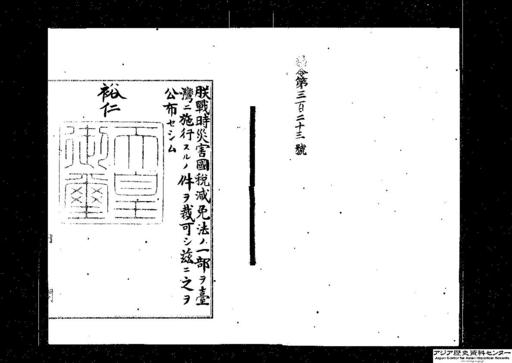 勅令第三百二十三號
朕戰時災害國稅減免法ノ一部ヲ臺
灣ニ施行スルノ件ヲ裁可シ茲ニ之ヲ
公布セシム
裕仁
天皇
御璽
アジア歴史資料センター
Japan Center for Asian Historical Records